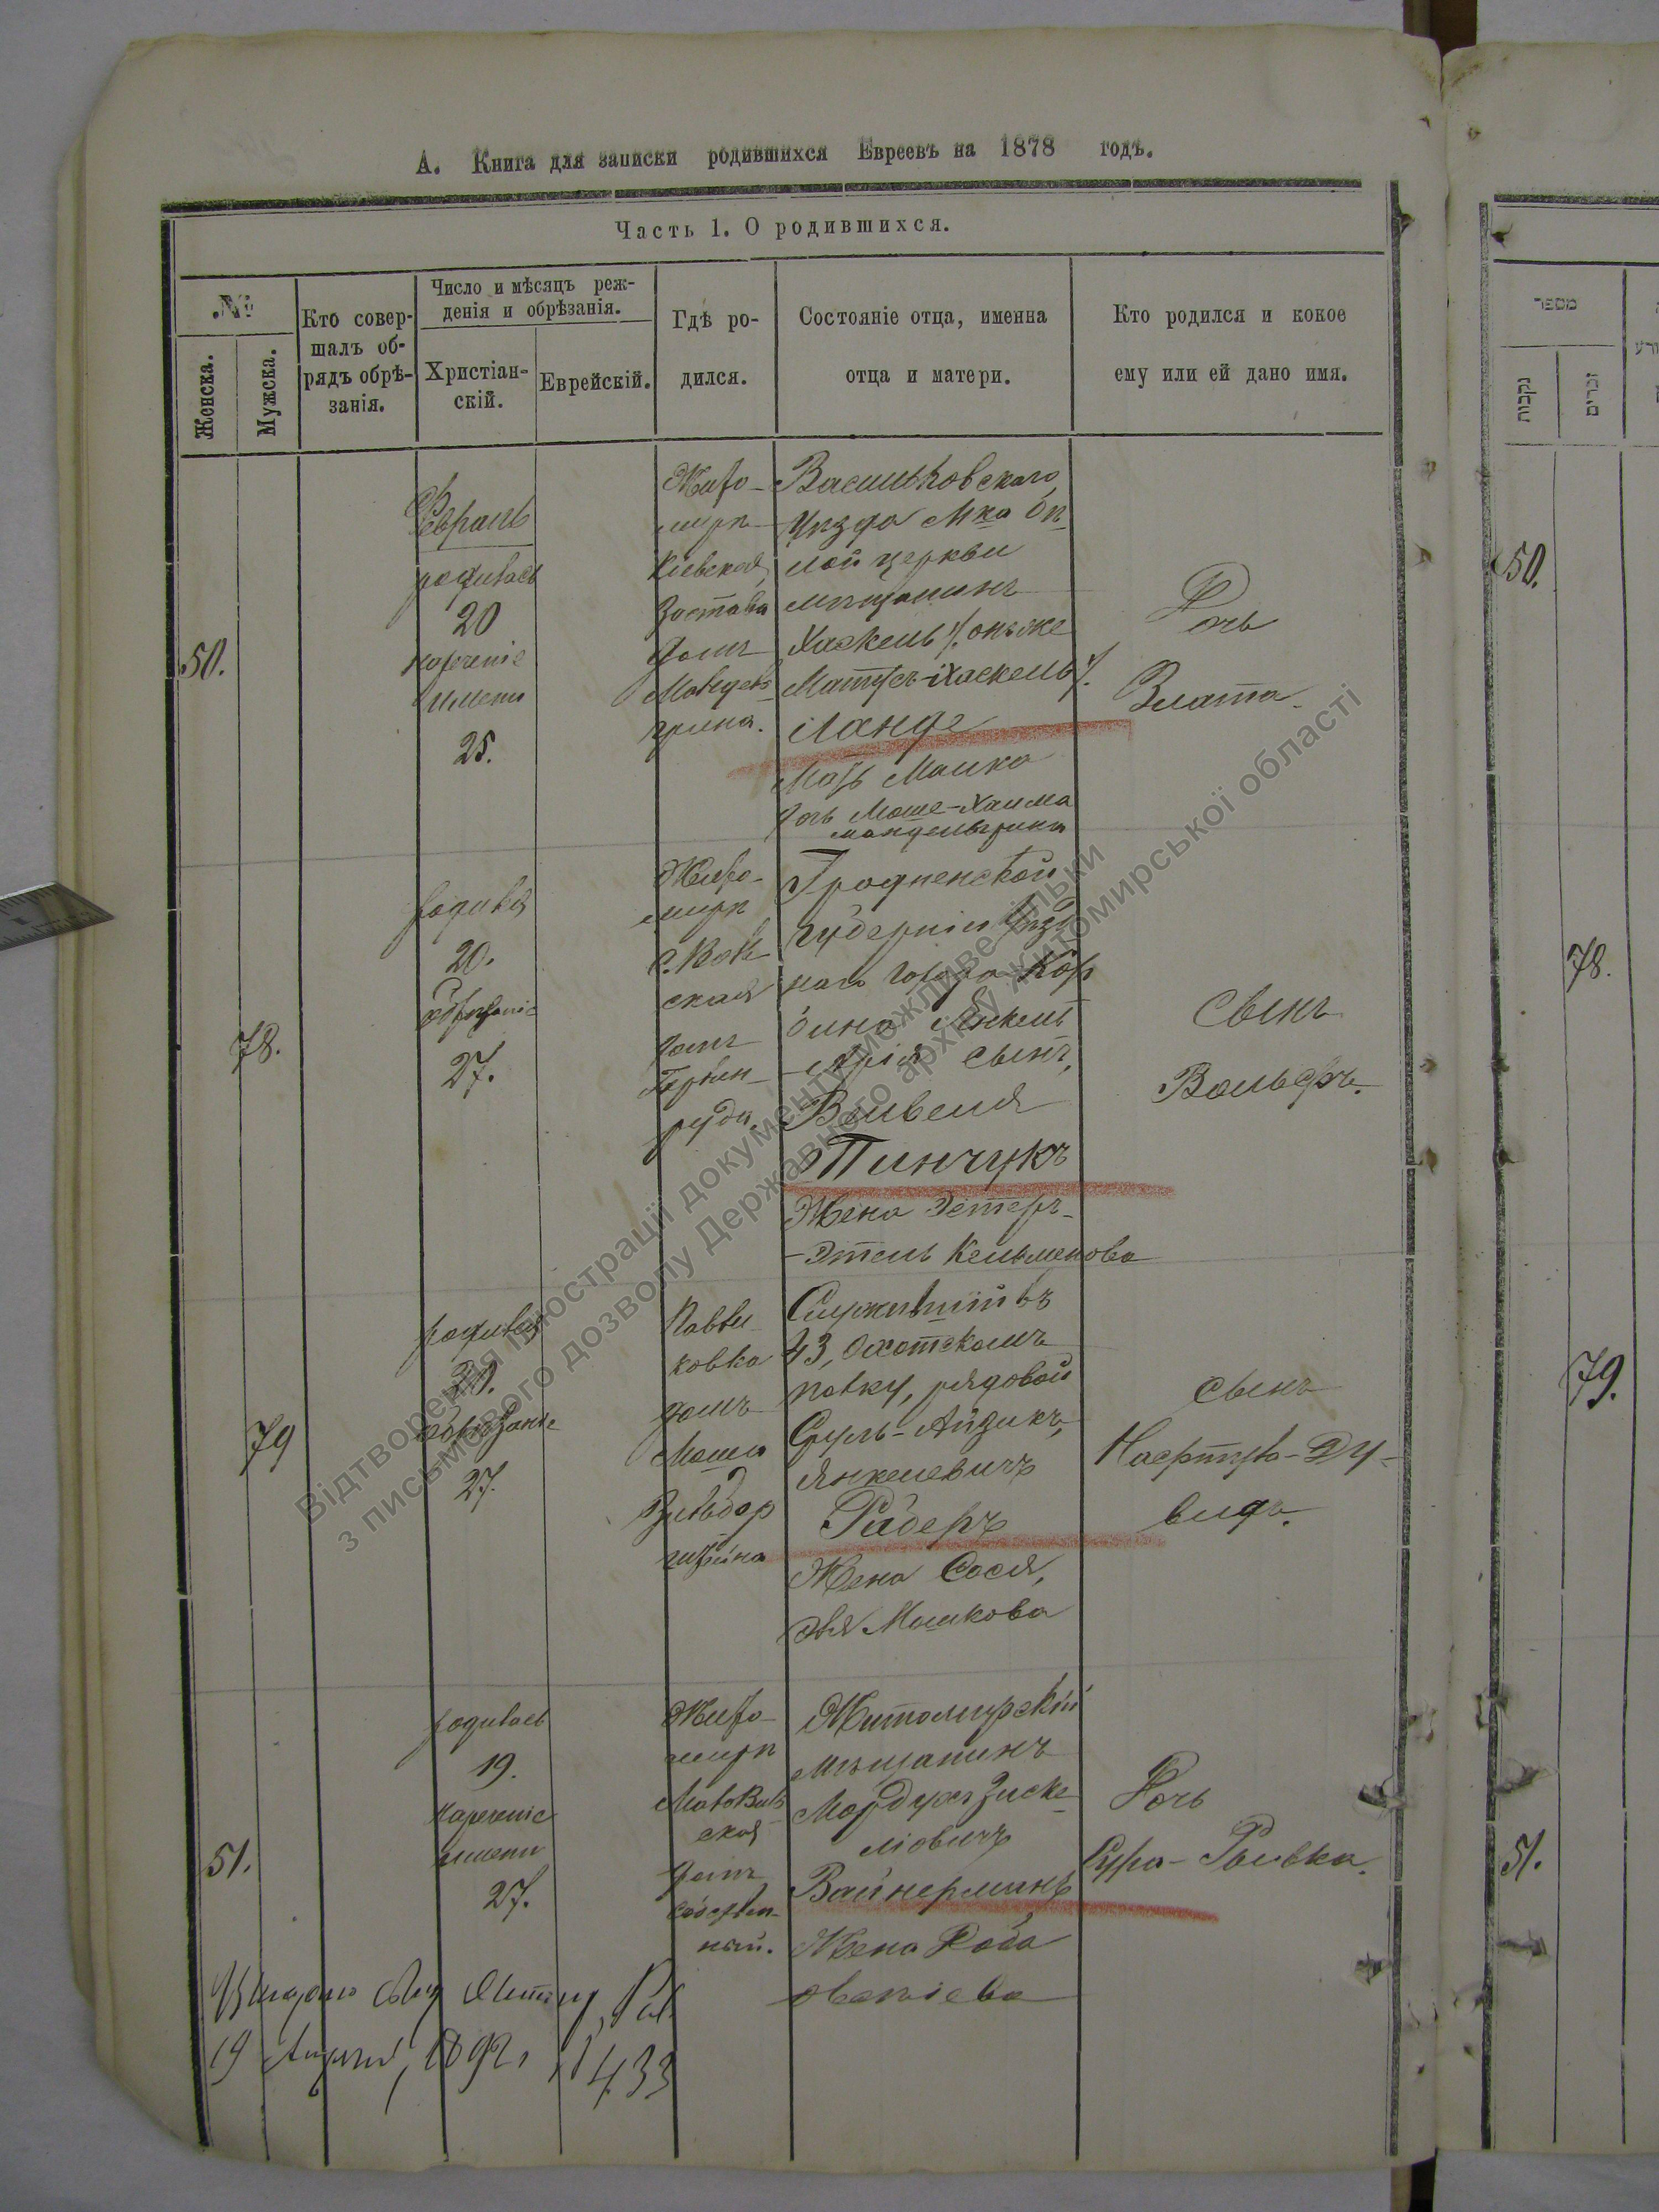 А. Книга для записки родившихся Евреевъ на 1878 годъ.
Часть 1. О родившихся.
№
Женска.
Мужска.
Кто совер-
шалъ об-
рядъ обрѣ-
занія.
Число и мѣсяцъ реж-
денія и обрѣзанія.
Христіан-
скій.
Еврейскій.
Гдѣ ро-
дился.
Состояніе отца, именна
отца и матери.
Кто родился и кокое
ему или ей дано имя.
50.
Февраль
родилась
20
нареченіе
имени
25.
Жито-
мирѣ
Кіевская
застава
домъ
грина.
Васильковскаго
Уѣзда М-ка Бѣ-
лой церкви
мѣщанинъ
Хаскель /. онъ же
Матусъ-Хаскель /.
Ланде
Мать Малка
дочь Моше-Хаима
мандельгрина
Дочь
Злата.
78.
родился
20.
обрѣзаніе
27.
Жито-
мирѣ
ская
домъ
Гродненской
губерніи Уѣзд
наго города Коб
рина Янкель
-Арія сынъ,
Вольвеля
Пинчукъ
Жена Эстеръ-
-Этель Кельменова
сынъ
Вольфъ.
79
родился
20.
обрѣзаніе
27.
Павли
ковка
домъ
Мошка
Служившій въ
43, Охотскомъ
полку, рядовой
Сруль-Айзикъ,
Янкелевичъ
Радеръ
Жена Сося,
Мошкова
сынъ
видъ.
51.
родилась
19.
нареченіе
имени
27.
Жито-
мирѣ
ская
домъ
собствен-
ный.
Житомирскій
мѣщанинъ
Мордухъ Зиске-
ліовичъ
Вайнерманъ
Жена Роба
Дочь
Сура-Рывка.
19 Апрѣля, 1892 г
433
מספר
נקבות
זכרים
50.
78.
79.
51.
Відтворення ілюстрації документу можливе тільки
з письмового дозволу Державного архіву Житомирської області